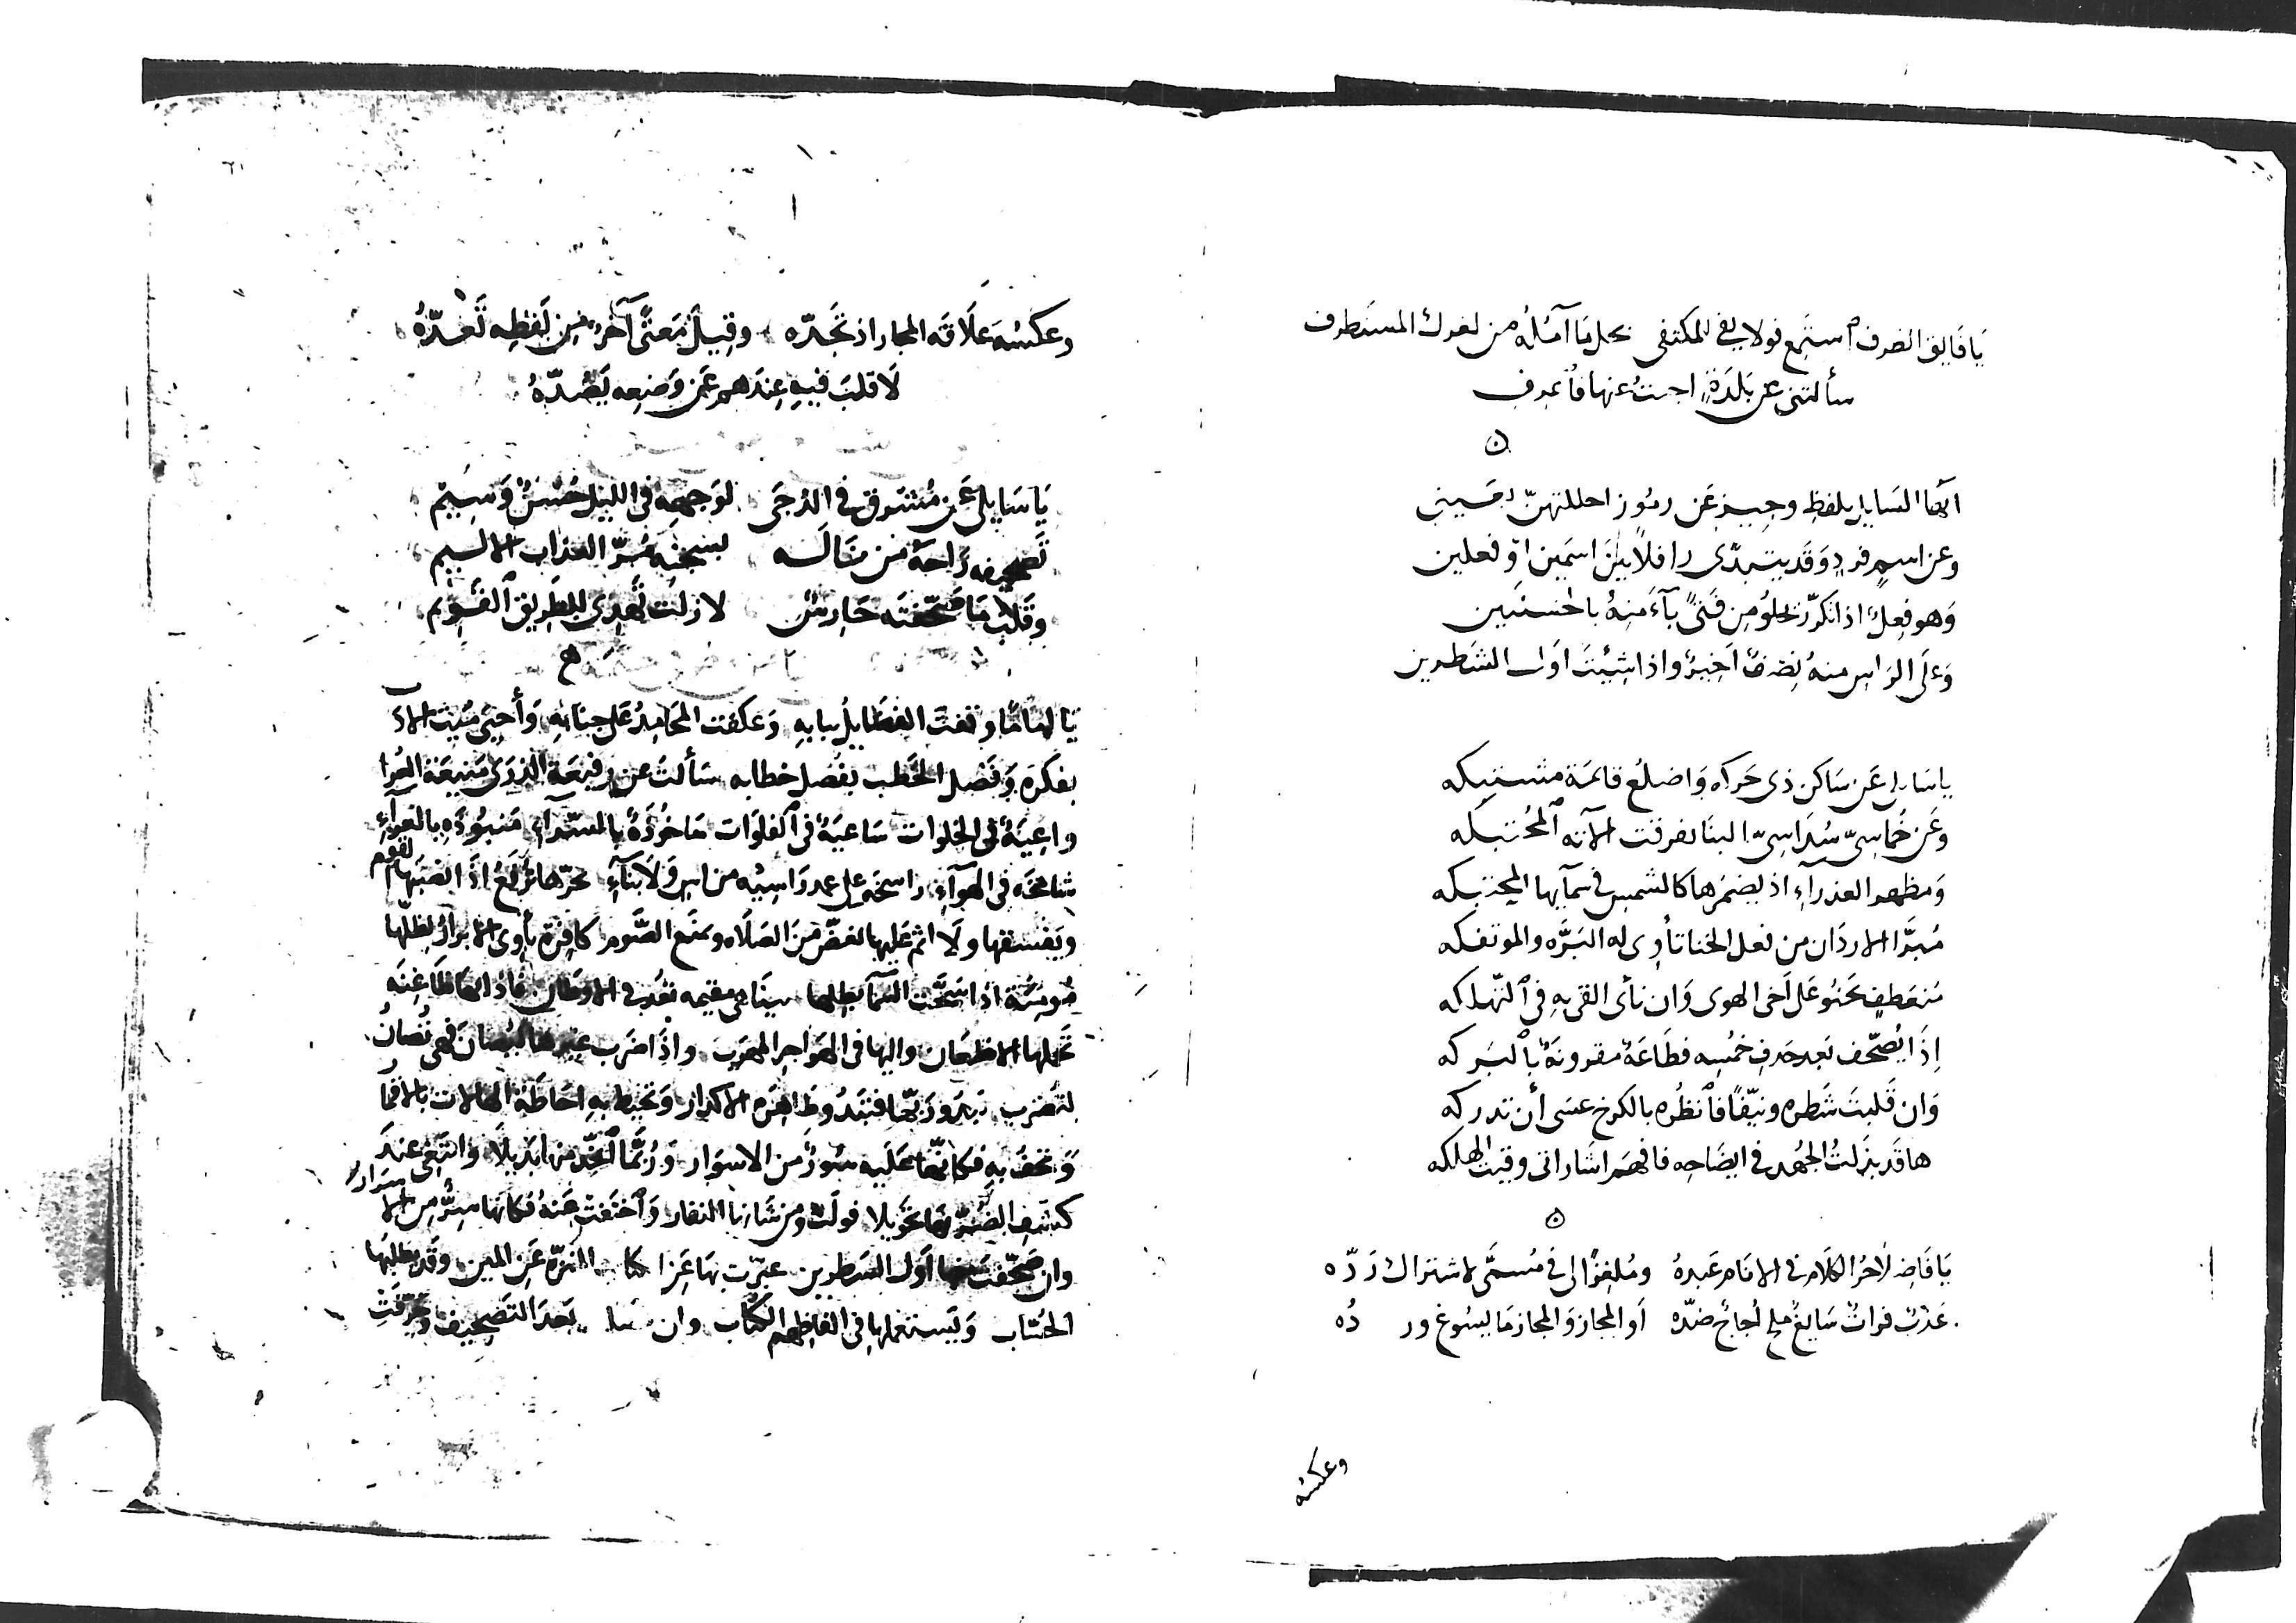 يَا فَايق الظرف استمع قولا يفي للمكتفي بحل مَا آمُلُه من لغزك المستطرف
سألتني عن بَلدَةٍ اجبتُ عنها فاعرف
ايهَا السَايل بلفظِ وجيز عَن رموز احللتهنّ
وعن اسمٍ فردٍ وَقد يتبدّى رافلاً بينَ اسمَين او فعلين
وَهو فِعلٌ اذا تكرّر يخلو مِن فتىً بآءَ مِنهُ بالحسنَيين
وَعلَى الراس منهُ نِصفٌ اخيرٌ واذا شِيْتَ اول الشَطرين
يا سَايل عَن سَاكن ذي حَركه وَاضلع قائمَة مشتبكه
وعَن خُماسيّ سُدَاسيّ البنا تفرقت الآته المُحتبكه
وَمظهر العذرآءِ اذ يضمرها كالشمس في سمآيها المحتبكه
مُبرَّا الاردَان من فعل الخنا تأوي له البَرَّه والموتفكه
مُنعَطفٍ يَحنُو عَلى اَخي الهوى وَان نأى القى به في التهلكه
إذَا يُصَحّف بَعد حَدف خمُسِه فطَاعَة مقرونَة بالبَركه
وَان قَلبتَ شَطره ونيّفًا فانظُره بالكرخ عسَى أن تدركه
ها قَد بذلتُ الجهُد في ايضَاحِه فافهَم اشَاراتي وقيتَ الهلكه
يَا فَاضِلاً حُرُّ الكَلَام في الانَام عَبدهُ ومُلغِزًا لي في مُسمَّى لاشتراك رَدّه
عَذبٌ فراتٌ سَايغٌ ملحٌ أجاجٌ ضدّه اَو المجاز وَالمجاز مَا يسُوغ ور دُه
وعكسُه
وعكسُه عَلَاقه المجاز اذ تَجدّه وقِيلَ مَعنًى آخَر مِن لَفظِه تَعدّهُ
لَا قلبَ فيهِ عِندهم عَن وَضعِه يَصُدّهُ
يَا سَايلي عَن مُشرق في الدُجَى لوَجهِه في الليل حُسنٌ وَسِيم
تصحيفه رَاحَة مَن نَالَه بسجنِه مُرّ العذاب الاليم
وقلب مَا صَحّفتَه حَارسٌ لا زلت تُهدى للطريق القَوِيم
يَا امامًا وقفتَ الفضَايلُ ببابهِ وَعكفت المحَامِدُ عَلى جنابهِ وَأحيَى مَيتَ الادب
بفكرَه وَفَصْل الخَطب بفَصْل خطابه سَألتَ عن رفيعَة الذرى مَنيعَة العُرا
واعِيَةٌ في الخلوات سَاعيَةٌ في الفلَوَات مَاخُوذَةٌ بالسّرآءِ مَنبُوذَه بالعَرآءِ
شامخَه في الهَوآءِ راسخَة على عدد رَاسِيْه من اسٍ وَلَا بنآءٍ اذَا انصَبَها لقوم
ويَفسقها ولَا اثم عَليهَا لغضّ مِنَ الصَلَاه ومَنَع الصَّوم كافِرَة يأوي الابرارُ لظلّها
مُومِنَة اذا شَحَّت السّمآ بطلها بينَا هي مقيمه تقُد في الاوطان فاذا هَا ظَاعِنَه
تحملها الاظعَان واليها في الهَواجر المهرَب واذَا ضرب غيرها ليُصَان فهي تُصانُ
لتُضرب وتَحيط بهِ احَاطَة الهَالات بالاقمار
وَتحفّ به فكانّهَا عَليه سُورٌ من الاسوَار وَرُبَّمَا اتخَّد منهَا بَديلاً وَابتَغَى عندَ
كشف الضُرّ بهَا تحَويلا فولّت ومن شَانِها النفار وَاختَفتْ عَنهُ فكانهَا سِرٌّ مِن الاسرار
وان صَحّفتَ منهَا اَول الشَطرين عبّرت بهَا عَن المنزّه عَن المين وقَد يطلبهَا
الحُسّاب وَيَستعملهَا في الفاظهم الكُتّاب وان بَعدَ التَصحِيف وَحَرّفتَ